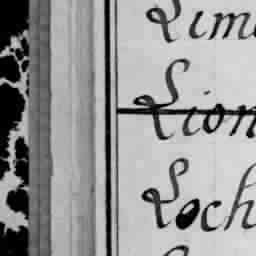 Lime
Lion
Loch